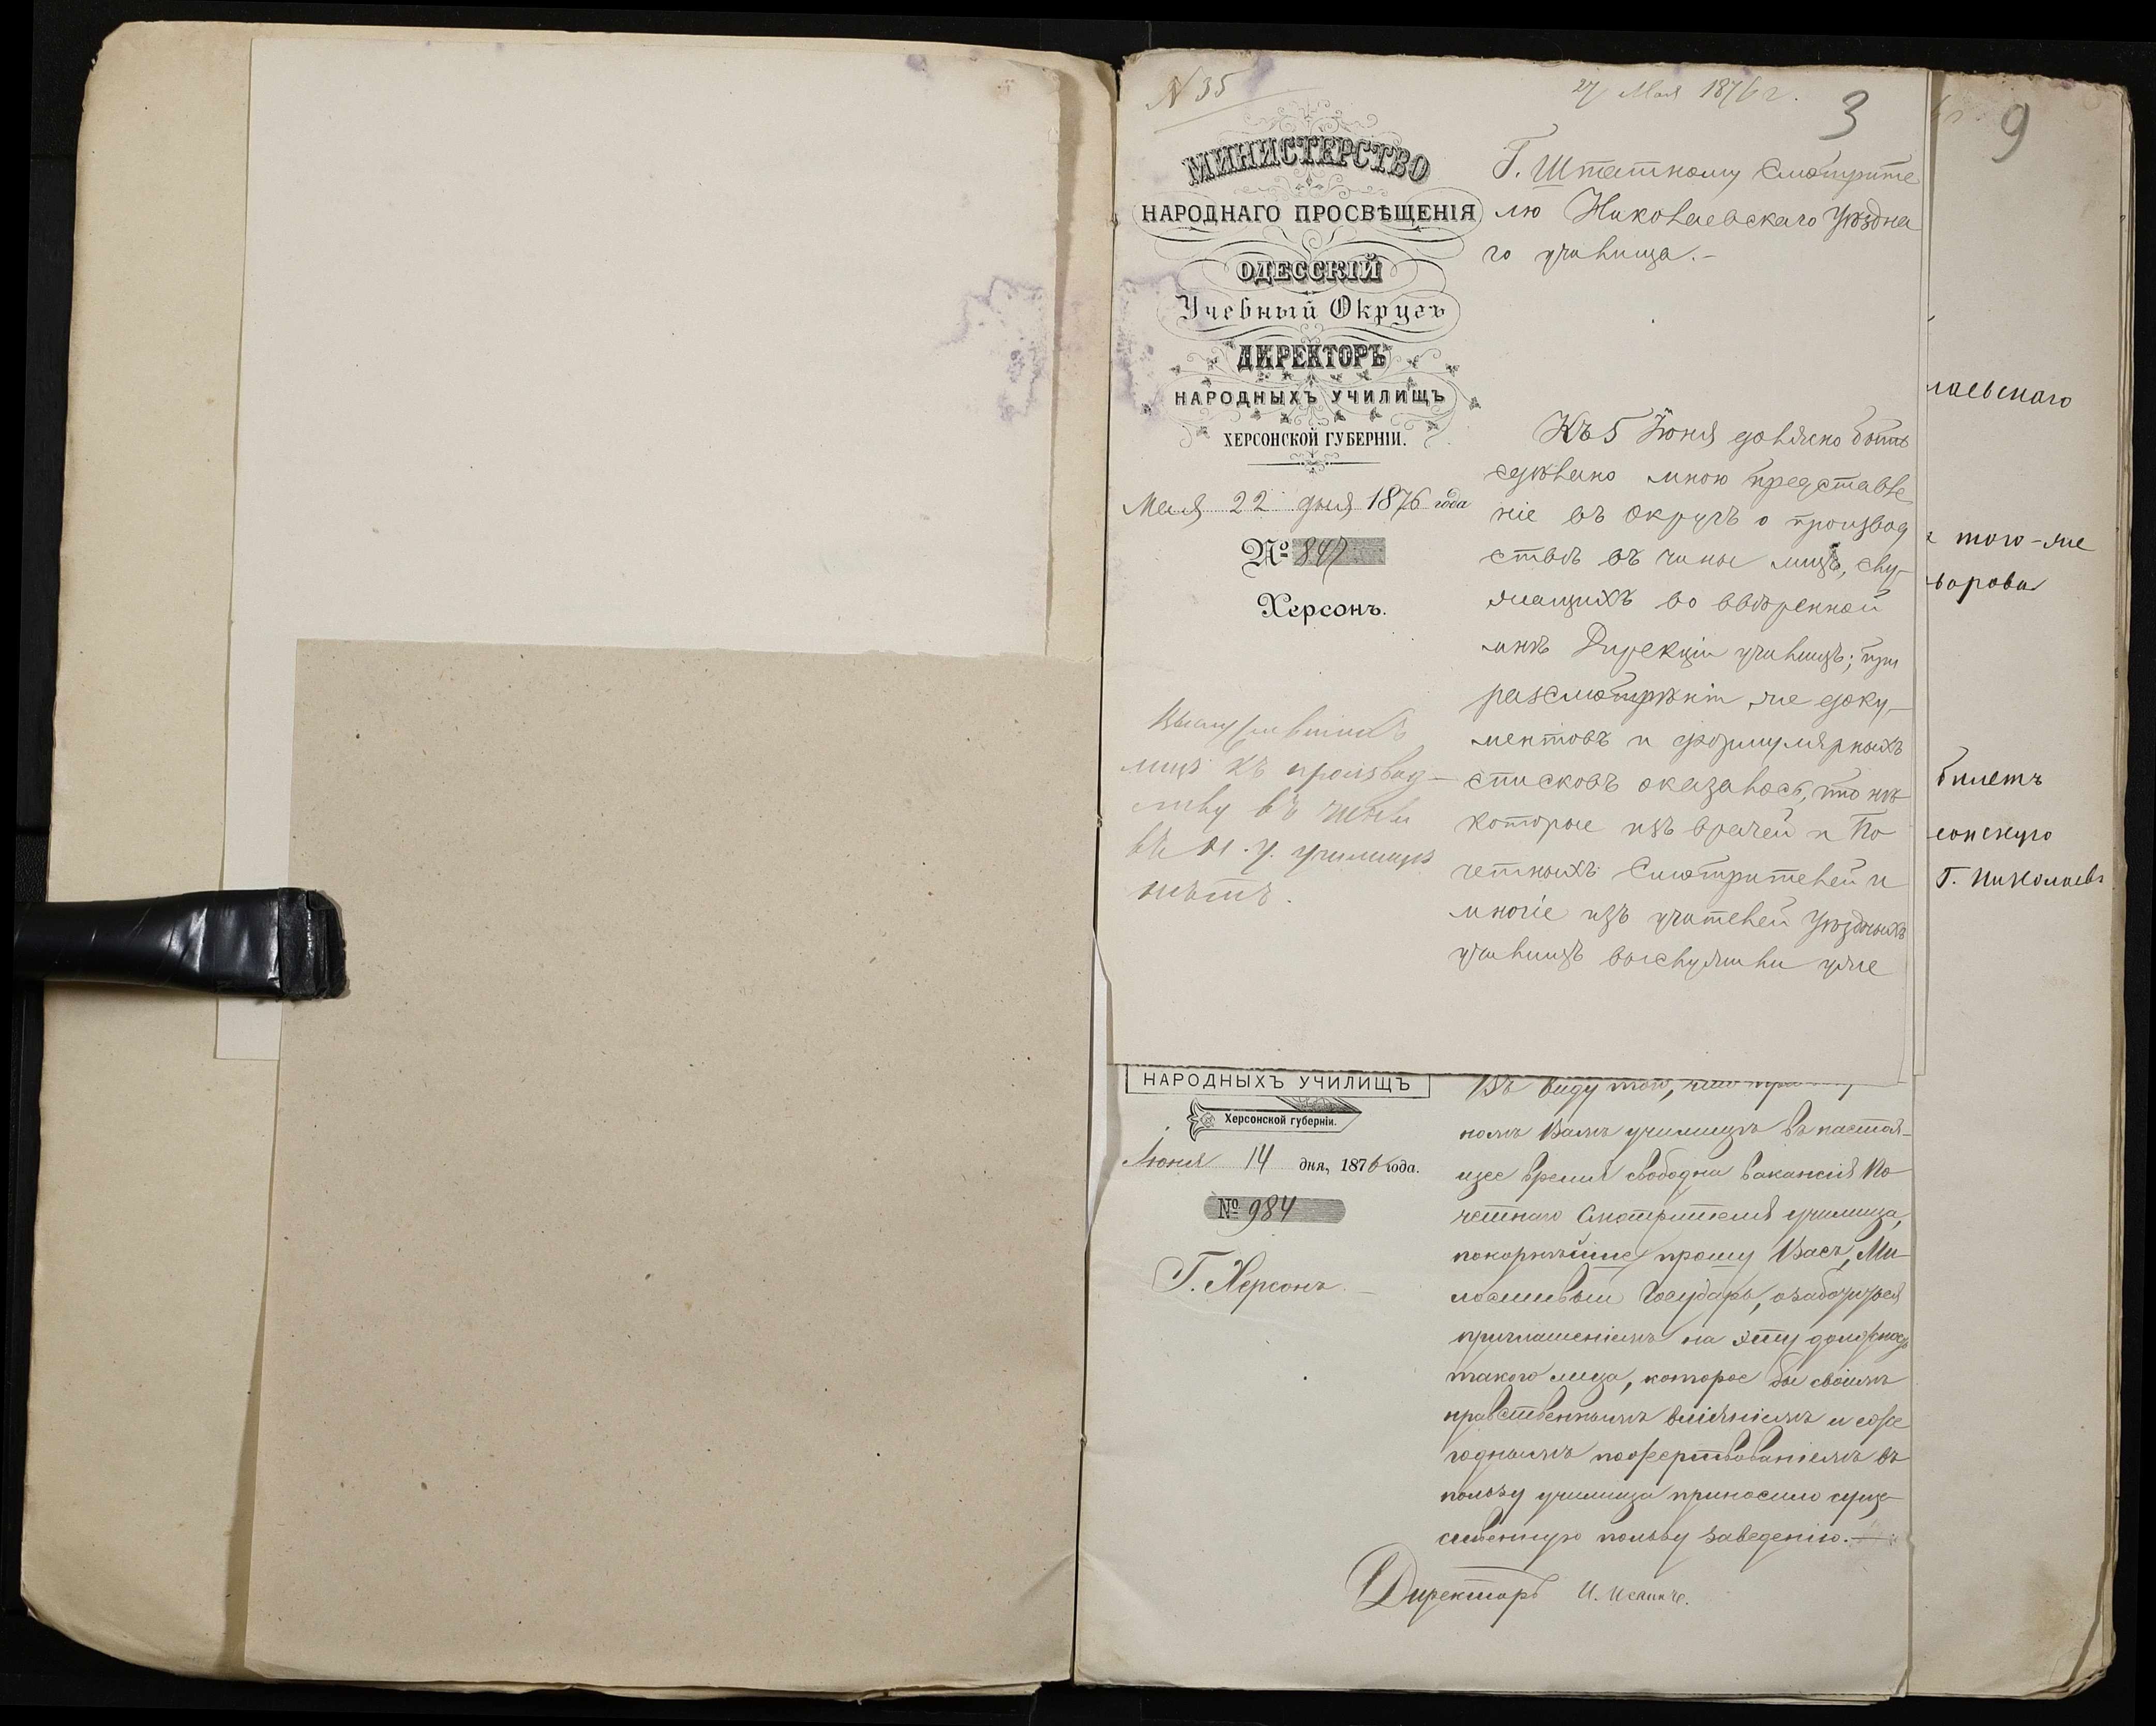 N 35
27 Мая 1876 г.
3
МИНИСТЕРСТВО
НАРОДНАГО ПРОСВѢЩЕНІЯ
ОДЕССКІЙ
Учебный Округъ
ДИРЕКТОРЪ
НАРОДНЫХЪ УЧИЛИЩЪ
ХЕРСОНСКОЙ ГУБЕРНІИ.
Мая 22 дня 1876 года
№ 847
Херсонъ.
Г. Штатному Смотрите
лю Николаевскаго Уѣздна
го училища.-
Къ 5 Іюня должно быть
сдѣлано мною представле
ніе въ Округъ о производ
ствѣ въ чины лицъ, слу-
жащихъ во ввѣренной
мнѣ Дирекціи училищъ; при
разсмотрѣніи же доку-
ментовъ и формулярныхъ
списковъ оказалось, что нѣ
которые изъ врачей и По
четныхъ Смотрителей и
многіе изъ учителей Уѣздныхъ
училищъ выслужили уже
Выслужившихъ
лицъ къ производ-
ству въ чины
въ Н. У. училищѣ
нѣтъ.
НАРОДНЫХЪ УЧИЛИЩЪ
Херсонской губерніи.
Іюня 14 дня, 1876 года.
№ 984
Г. Херсонъ.
Въ виду того, что
номъ Вамъ училищѣ въ настоя-
щее время свободна вакансія По-
четнаго Смотрителя училища,
покорнѣйше прошу Васъ, Ми-
лостивый Государь, озаботиться
приглашеніемъ на эту должность
такого лица, которое бы своимъ
нравственнымъ вліяніемъ и еже
годнымъ пожертвованіемъ въ
пользу училища приносило суще-
ственную пользу заведенію.—
Директоръ
9
лаевскаго
того-же
варова
билетъ
сонскую
Г. Николаевъ